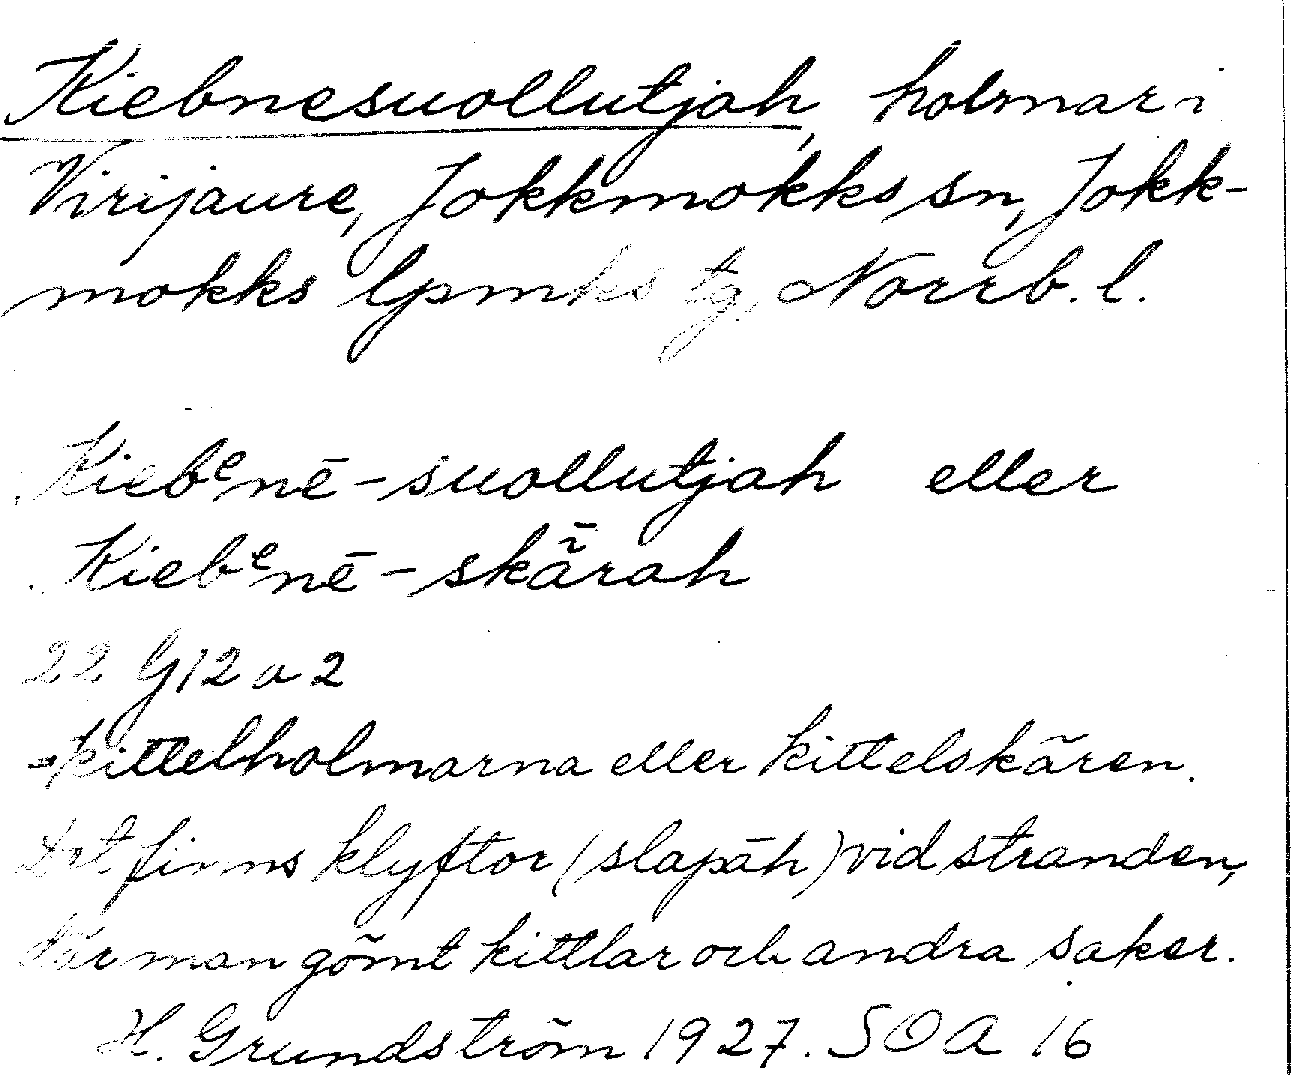 Kiebnesuollutjah, holmar i
Virijaure, Jokkmokks sn, Jokk-
mokks lpmks tg, Norrb. l.
Kiebᵉnē-suollutjah eller
Kiebᵉnē-skǟrah
22 G 12 a 2
=kittelholmarna eller kittelskären.
Det finns klyftor (slapāh) vid stranden,
där man gömt kittlar och andra saker.
H. Grundström 1927. SOA 16